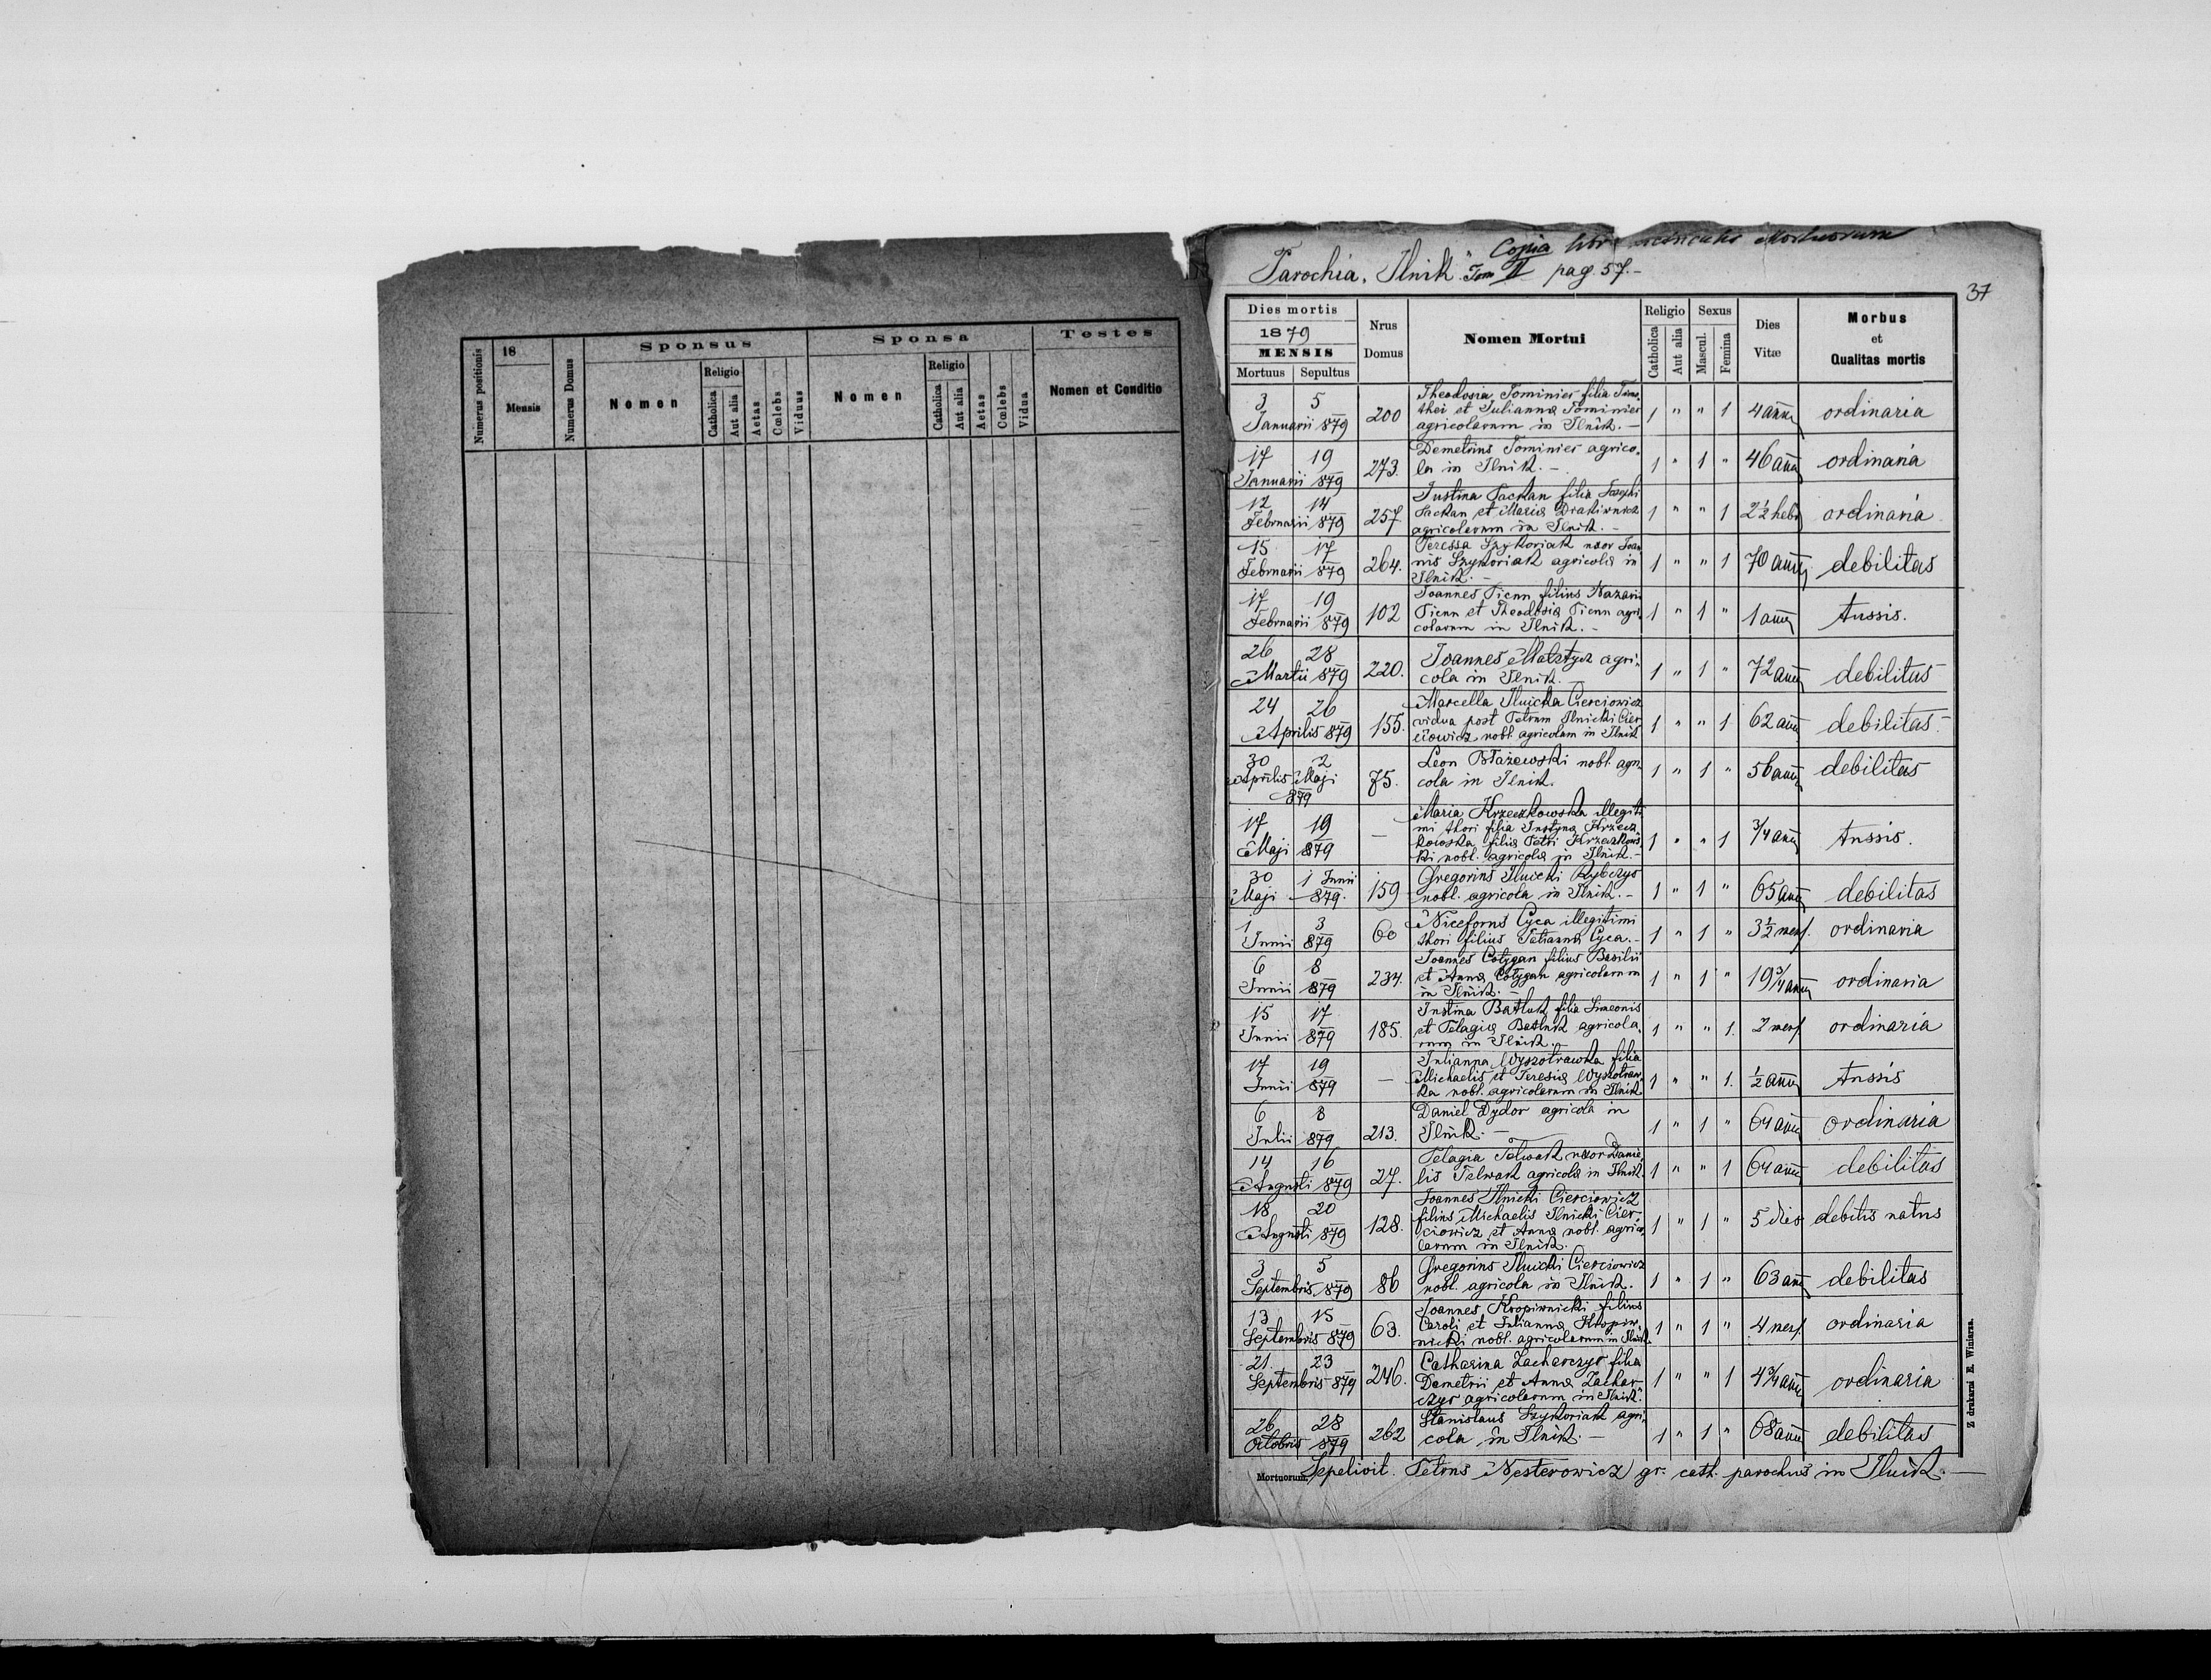 Numerus positionis
18
Mensis
Numerus Domus
Sponsus
Nomen
Religio
Catholica
Aut alia
Aetas
Cœlebs
Viduus
Sponsa
Nomen
Religio
Catholica
Aut alia
Aetas
Cœlebs
Vidua
Testes
Nomen et Conditio
Copia Mortuorum
Parochia. Ilnik. Tom II pag. 57.-
37
Dies mortis
1879
MENSIS
Mortuus Sepultus
Nrus
Domus
Nomen Mortui
Religio
Catholica
Aut alia
Sexus
Mascul.
Femina
Dies
Vitæ
Morbus
et
Qualitas mortis
3 5
Januarii 879
200
Theodosia Tominiec filia Timo-
thei et Julianna Tominiec
agricolarum in Ilnik. -
1 " " 1 4 ann ordinaria
17 19
Januarii 879
273.
Demetrius Tominiec agrico-
la in Ilnik. -
1 " 1 " 46 ann ordinaria
12 14
Februarii 879
257
Justina Packan filia Josephi
Packan et Maria
agricolarum in Ilnik. -
1 " " 1 2½ hebd ordinaria
15 17
Februarii 879
264.
Teressa Szykoriak uxor Joan
nis Szykoriak agricola in
Ilnik. -
1 " " 1 70 ann debilitas
17 19
Februarii 879
102
Joannes Picun filius Nazarii
Picun et Theodosia Picun agri-
colarum in Ilnik. -
1 " 1 " 1 ann tussis.
26 28
Martii 879
220.
Joannes agri-
cola in Ilnik. -
1 " 1 " 72 ann debilitas
24 26
Aprilis 879
155.
Marcella Ilnicka Cierciowicz
vidua post Petrum Ilnicki Cier
ciowicz nobl. agricolam in Ilnik
1 " " 1 62 ann debilitas-
30 2
Aprilis Maji
879
75.
Leon Błażewski nobl. agri-
cola in Ilnik.
1 " 1 " 56 ann debilitas
17 19
Maji 879
-
Maria Krzeczkowska illegiti
mi thori filia Justyna Krzecz
kowska filia Petri Krzeczkows
ki nobl. agricola in Ilnik. -
1 " " 1 ¾ ann tussis.
30 1 Junii
Maji 879.
159
Gregorius Ilnicki Rybczyc
nobl. agricola in Ilnik. -
1 " 1 " 65 ann debilitas
1 3
Junii 879
60
Niceforus Cyca illegitimi
thori filius Tatianna Cyca. -
1 " 1 " 3½ mens. ordinaria
6 8
Junii 879
234.
Joannes Cotygan filius Basilii
et Anna Cotygan agricolarum
in Ilnik. -
1 " 1 " 19¾ ann ordinaria
15 17
Junii 879
185.
Justina Batluk filia Simeonis
et Pelagia Batluk agricola-
rum in Ilnik. -
1 " " 1. 2 mens ordinaria
17 19
Junii 879
-
Julianna Wyszotrawka filia
Michaelis et Teresia Wyszotraw
ka nobl. agricolarum in Ilnik
1 " " 1. ½ ann tussis
6 8
Julii 879
213.
Daniel Dydor agricola in
Ilnik. -
1 " 1 " 64 ann ordinaria
14 16
Augusti 879
27.
Pelagia Telwak uxor Danie
lis Telwak agricola in Ilnik.
1 " " 1 64 ann debilitas
18 20
Augusti 879
128.
Joannes Ilnicki Cierciowicz
filius Michaelis Ilnicki Cier-
ciowicz et Anna nobl. agrico
larum in Ilnik.
1 " 1 " 5 dies debilis natus
3 5
Septembris 879
86
Gregorius Ilnicki Cierciowicz
nobl. agricola in Ilnik.
1 " 1 " 63 ann debilitas
13 15
Septembris 879
63.
Joannes Kropiwnicki filius
Caroli et Julianna Kropiw-
nicki nobl. agricolarum in Ilnik.
1 " 1 " 4 mens. ordinaria
21. 23
Septembris 879
246.
Catharina Zacharczyc filia
Demetrii et Anna Zachar
czyc agricolarum in Ilnik.
1 " " 1 4¾ ann ordinaria
26 28
Octobris 879
262
Stanislaus Szykoriak agri-
cola in Ilnik. -
1 " 1 " 68 ann debilitas
Mortuorum. Sepelivit. Petrus Nesterowicz gr. cath. parochus in Ilnik. -
Z drukarni E. Winiarza.